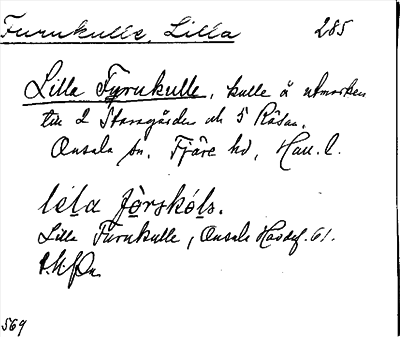 Furukulle, Lilla 285
Lilla Fyrukulle, kulle å utmarken
till 2 Staragården och 5 Råsan.
Onsala sn. Fjäre hd, Hall. l.
Lilla Furukulle, Onsala Hasdef. 61.
569